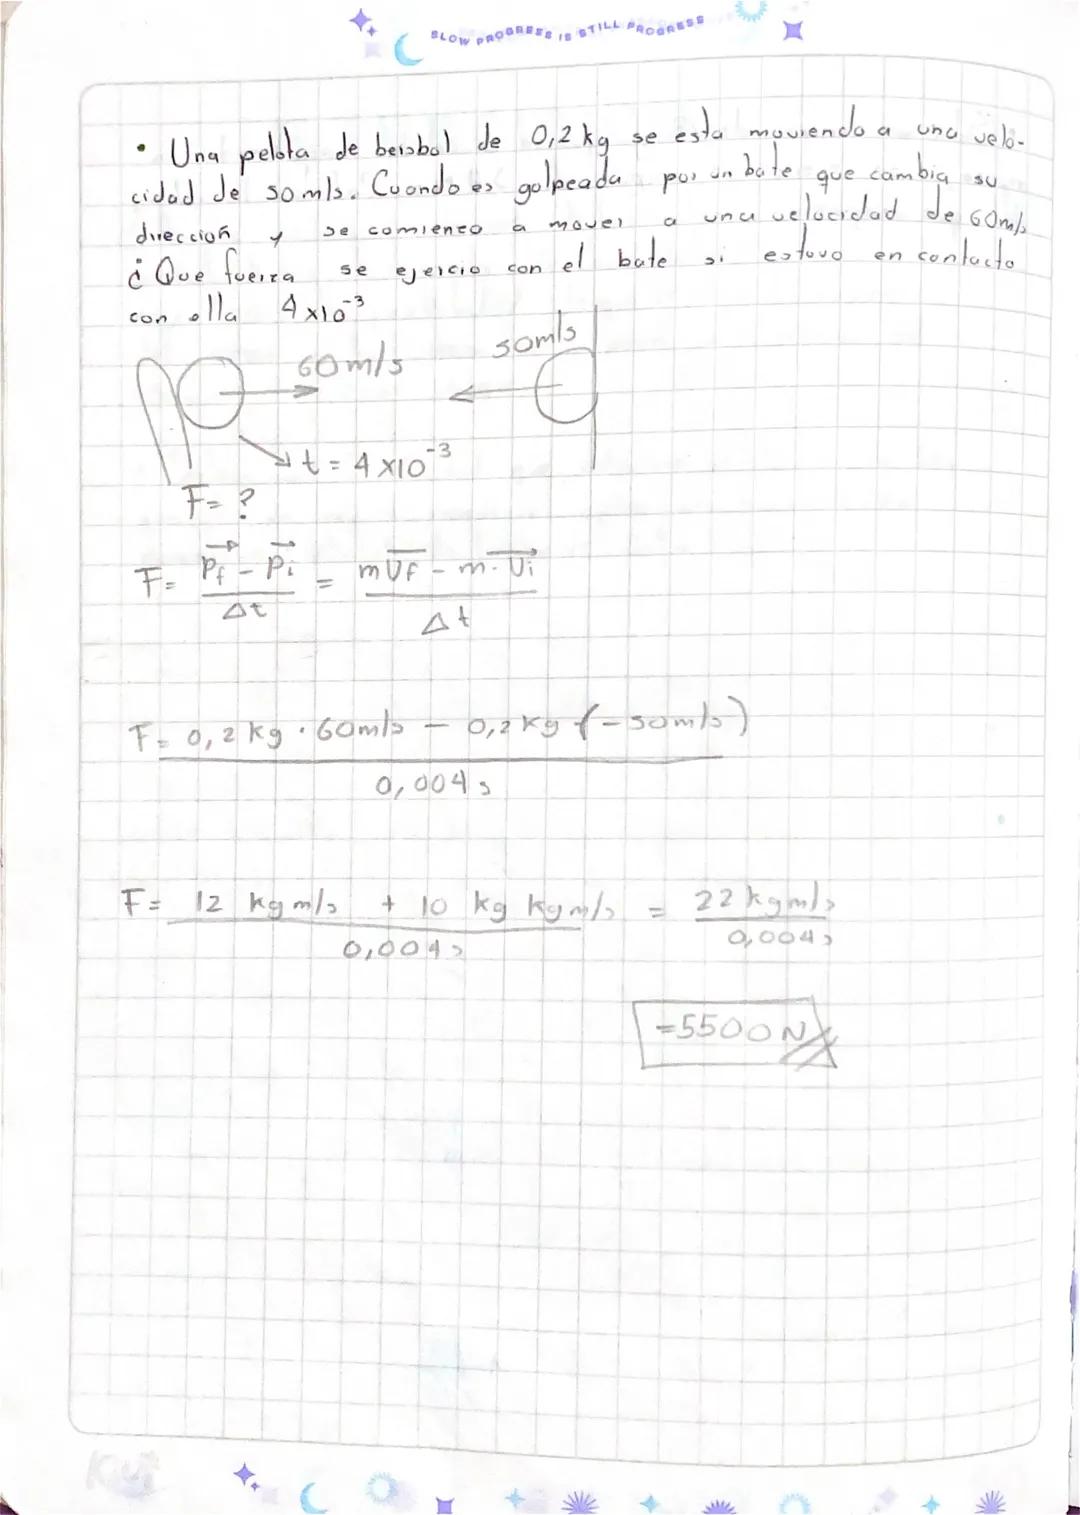 SLOW PROGRESS IS STILL PROGRESS
• Una pelota de beisbol de 0,2 kg se esta moviendo a una velo-
cidad de 50 m/s. Cuando es golpeada por un bate que cambia su
dirección y se comienzo a mover a una velocidad de 60m/s
¿ Que fuerza se ejercio con el bate si estuvo en contacto
con ella 4 x10⁻³
60 m/s 50m/s
t = 4 x10⁻³
F= ?
F= Pf - Pi / Δt = m Vf - m. Vi / Δt
F= 0,2 kg . 60m/s - 0,2 kg (-50m/s)
0,004 s
F= 12 kg m/s + 10 kg kgm/s = 22 kgm/s
0,004 s 0,004 s
=5500 N
Kut